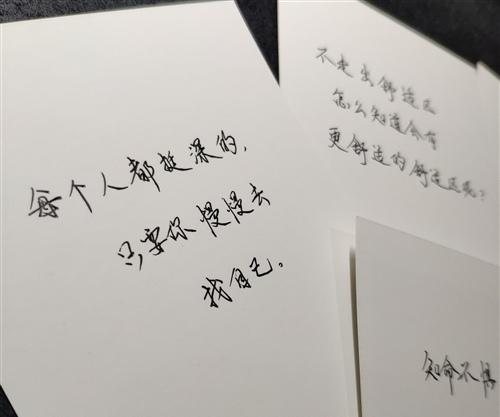 每个人都挺深的,
只要你慢慢去
找自己。
不走出舒适区
怎么知道会有
更舒适的舒适区呢?
知命不惧